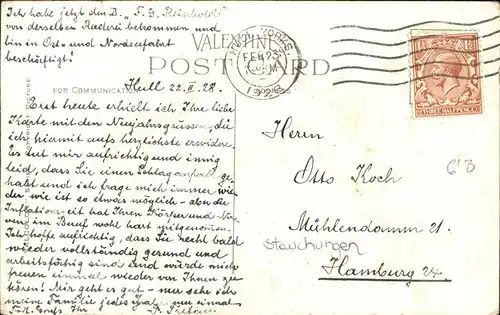 Ich habe jetzt den D. „F. G. Reinhold"
von derselben Reederei bekommen und
bin in Ost- und Nordseefahrt
beschäftigt!
VALENTINE'S
POST CARD
FOR COMMUNICATION
HULL YORKS
FEB 23
1928
THREE HALFPENCE
Hull 22.II.28.
Erst heute erhielt ich Ihre liebe
Karte mit den Neujahrsgrüssen, die
ich hiermit aufs herzlichste erwidere.
Es tut mir aufrichtig und innig
leid, dass Sie einen Schlaganfall ge-
habt und ich frage mich immer wie-
der wie ist so etwas möglich - aber die
Inflationszeit hat Ihren Körper und Ner-
ven im Beruf wohl hart mitgenommen.
Ich hoffe zuversichtlich, dass Sie recht bald
wieder vollständig gesund und
arbeitsfähig sind und würde mich
freuen einmal wieder von Ihnen zu
hören! Mir geht es gut - nur sehe ich
meine Familie jedes Jahr nur einmal
Gruss Ihr
Herrn
Otto Koch
613
Mühlendamm 21.
Stauchungen
Hamburg 24.